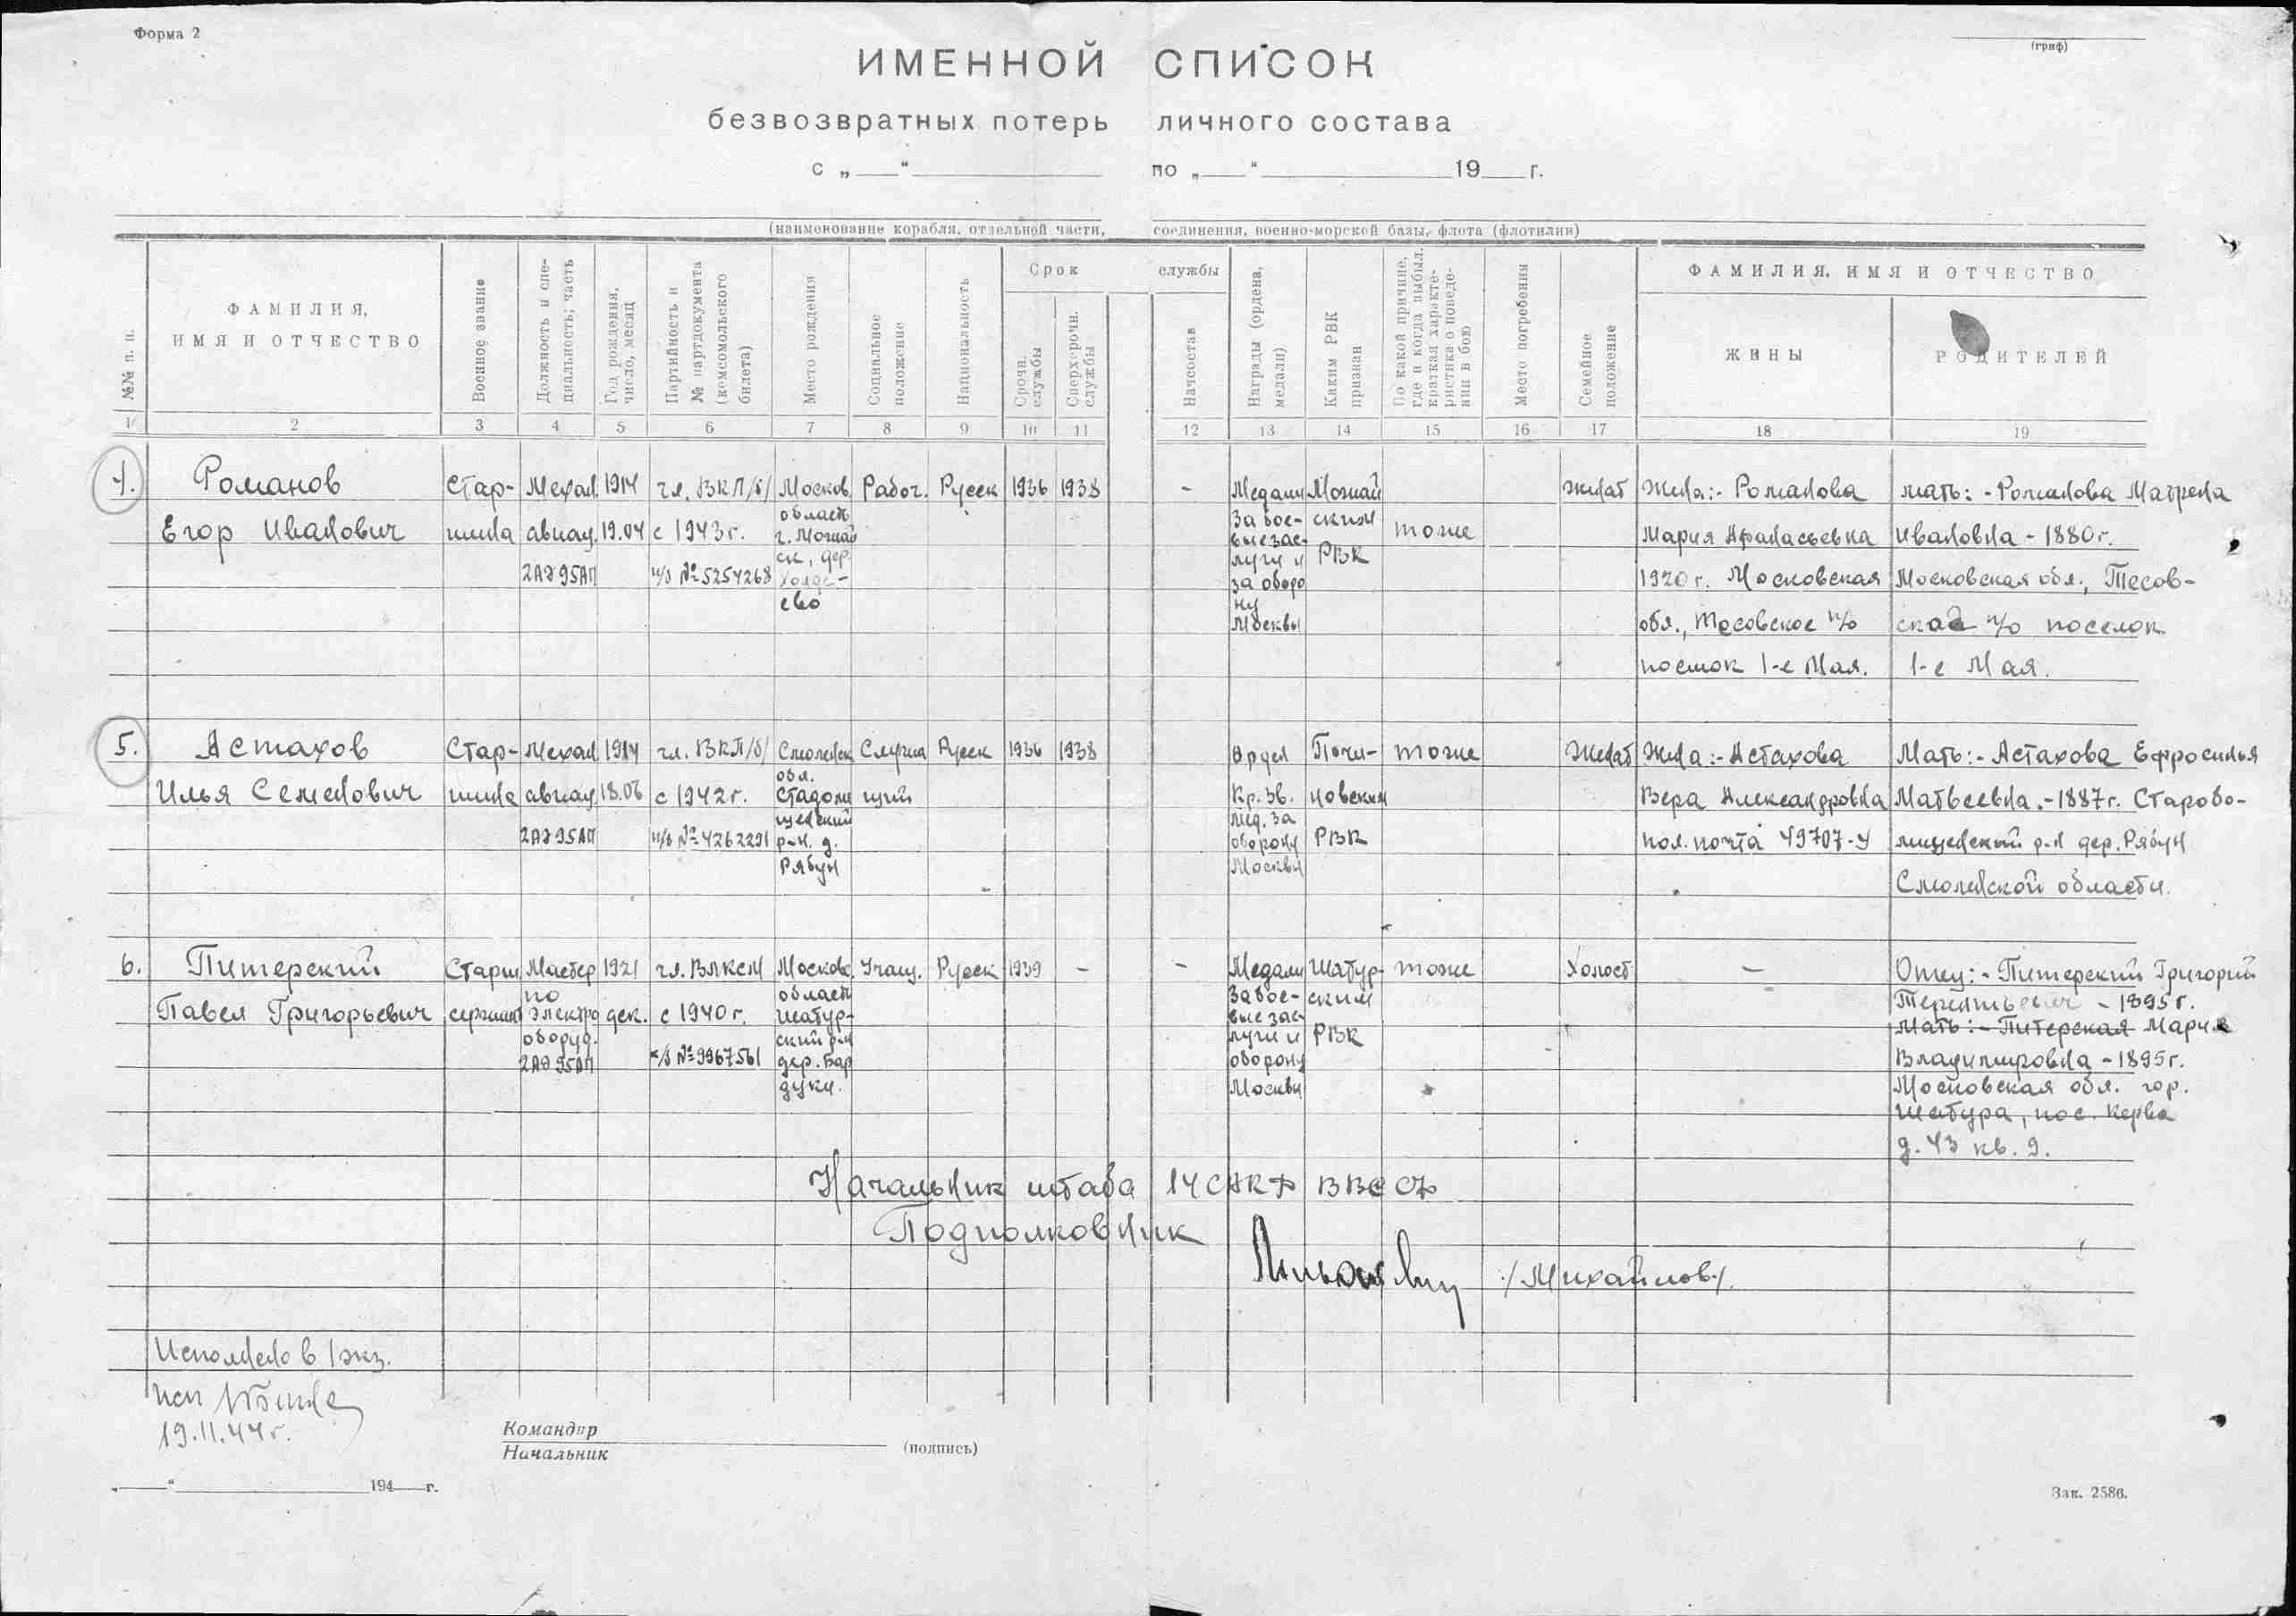 Форма 2
(гриф)
ИМЕННОЙ СПИСОК
безвозвратных потерь личного состава
с „___“ ______ по „___“ ______ 19___г.
(наименование корабля, отдельной части, соединения, военно-морской базы, флота (флотилии)
№№ п. п.
ФАМИЛИЯ,
ИМЯ И ОТЧЕСТВО
Военное звание
Должность и спе-
циальность; часть
Год рождения,
число, месяц
Партийность и
№ партдокумента
(комсомольского
билета)
Место рождения
Социальное
положение
Национальность
Срок службы
Срочн.
службы
Сверхсрочн.
службы
Начсостав
Награды (ордена,
медали)
Каким РВК
призван
По какой причине,
где и когда выбыл.
краткая характе-
ристика о поведе-
нии в бою
Место погребения
Семейное
положение
ФАМИЛИЯ, ИМЯ И ОТЧЕСТВО
ЖЕНЫ
РОДИТЕЛЕЙ
1 2 3 4 5 6 7 8 9 10 11 12 13 14 15 16 17 18 19
4.
Романов
Егор Иванович
Стар-
шина
Механ.
авиац.
2АЭ 95АП
1914
19.04
чл. ВКП/б/
с 1943 г.
п/б № 5254268
Москов.
область
г. Можай
ск, дер.
Рабоч.
Русск
1936
1938
-
Медали
За бое-
вые зас-
луги и
за оборо
ну
Москвы
Можай
ским
РВК
тоже
женат
Жена:- Романова
Мария Афанасьевна
1920 г. Московская
обл., Тесовское п/о
поселок 1-е Мая.
мать: - Романова Матрена
Ивановна - 1880 г.
Московская обл., Тесов-
ская п/о поселок
1-е Мая.
5.
Астахов
Илья Семенович
Стар-
шина
Механ
авиац.
2АЭ 95АП
1914
18.07
чл. ВКП/б/
с 1942 г.
п/б № 4262291
Смоленск
обл.
Стадоли
щенский
р-н. д.
Рябун
Служа
щий
Русск
1936
1938
Орден
Кр. Зв.
мед. за
оборону
Москвы
Почи-
новским
РВК
тоже
Женат
Жена:- Астахова
Вера Александровна
пол. почта 49707-У
Мать:- Астахова Ефросинья
Матвеевна.-1887 г. Старобо-
лищенский р-н дер. Рябун
Смоленской области.
6.
Питерский
Павел Григорьевич
Старш.
сержант
Мастер
по
электро
оборуд.
2АЭ 95АП
1921
дек.
чл. ВЛКСМ
с 1940 г.
к/б № 9967561
Москов.
область
Шатур-
ский р-н
дер. Бар
дуки.
Учащ.
Русск
1939
-
-
Медали
За бое-
вые зас-
луги и
оборону
Москвы
Шатур-
ским
РВК
тоже
Холост
—
Отец:- Питерский Григорий
Терентьевич - 1895 г.
Мать:- Питерская Мария
Владимировна - 1895 г.
Московская обл. гор.
Шатура, пос. Керва
д. 43 кв. 9.
Начальник штаба 14 САКД ВВС СФ
Подполковник
/Михайлов/.
Исполнено в 1 экз.
исп
19.11.44 г.
Командир
Начальник
(подпись)
„___“ ______ 194___г.
Зак. 2586.